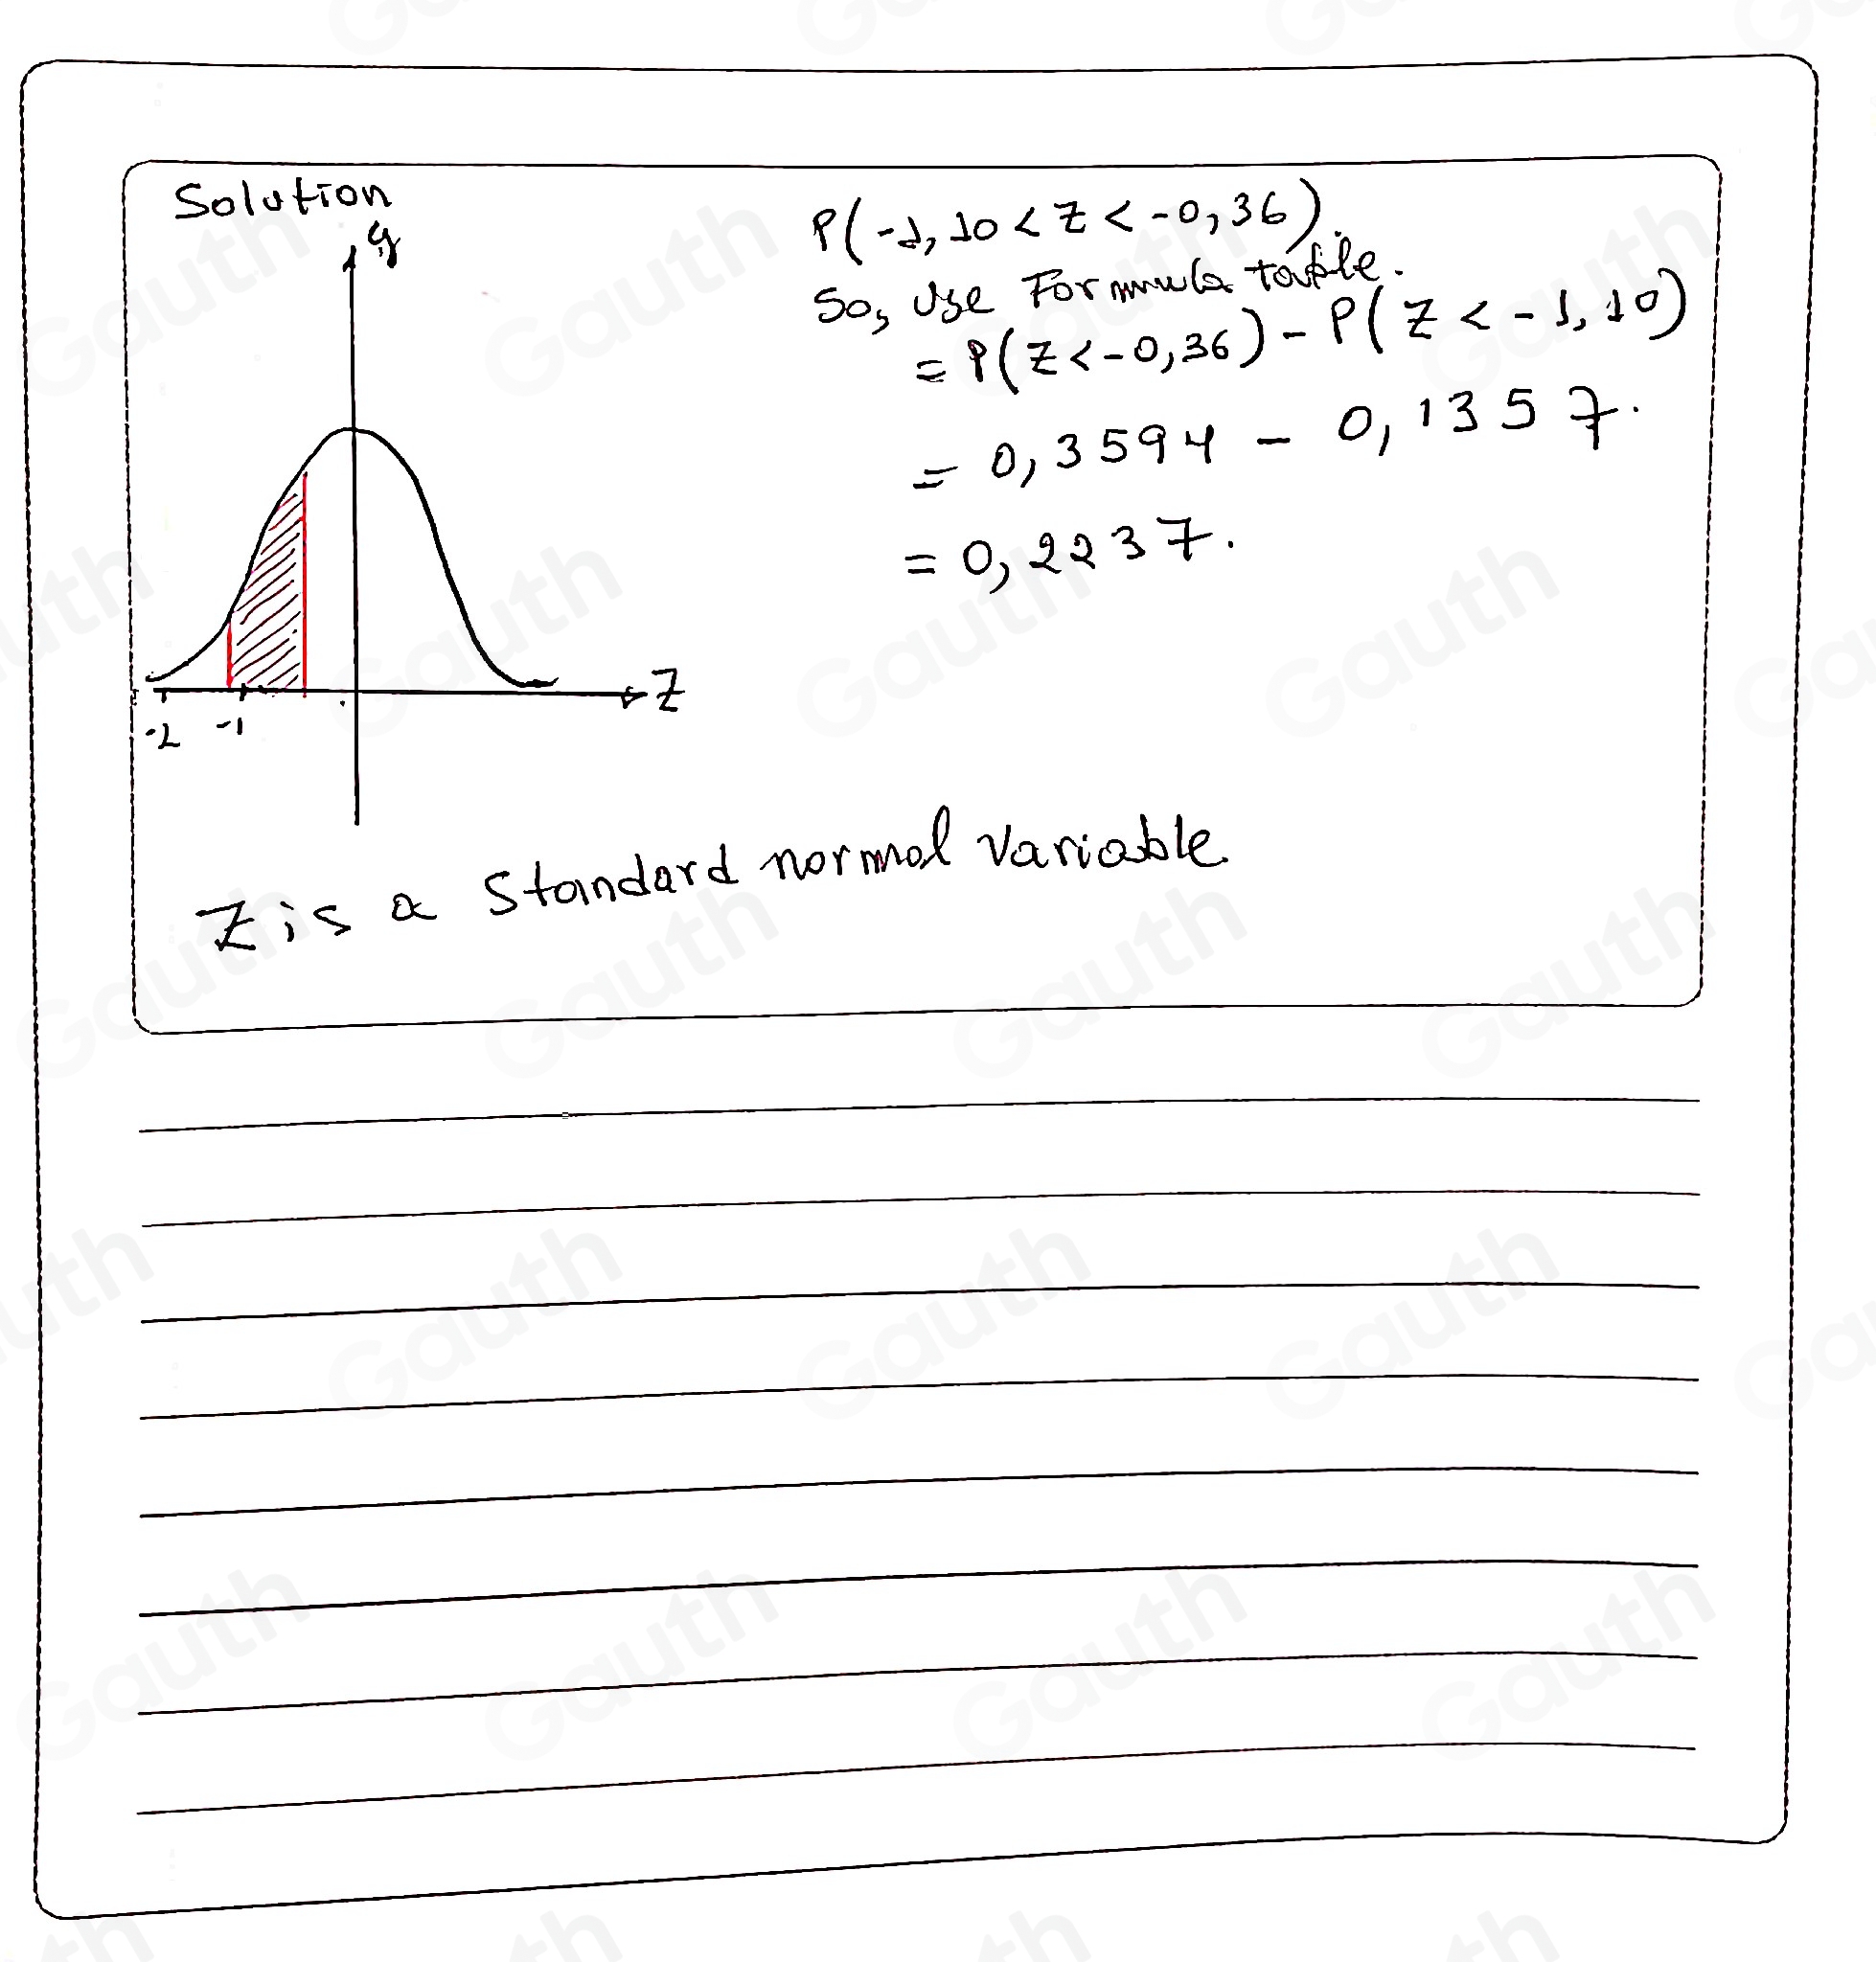 Solution
y
P(-1,10 < Z < -0,36).
So, Use Formula table.
= P(Z < -0,36) - P(Z < -1,10)
= 0,3594 - 0,1357.
= 0,2237.
Z
-2 -1
Z is a Standard normal Variable